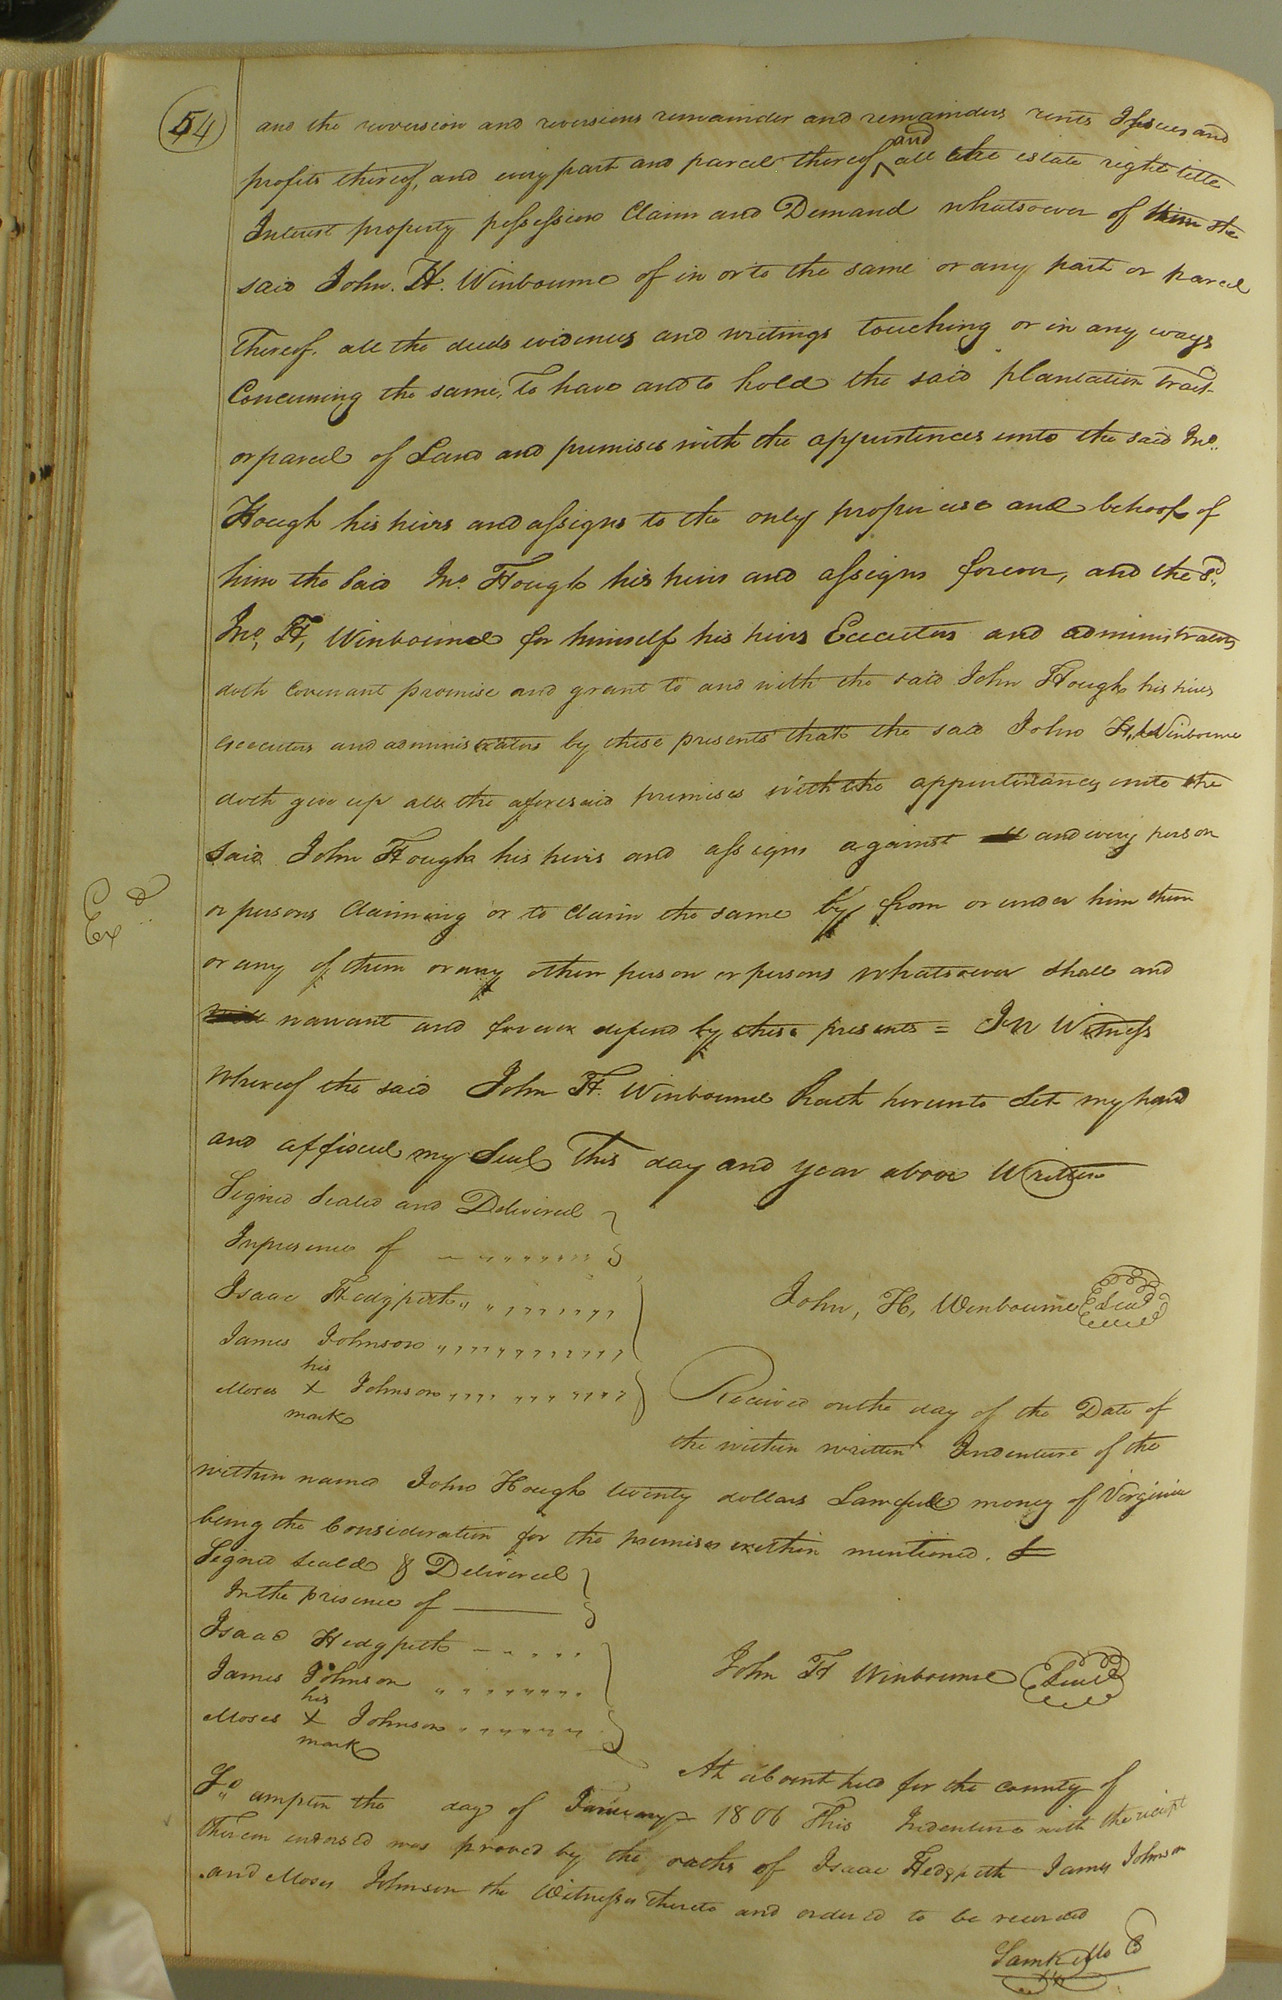 54
and the reversion and reversions remainder and remainders rents Issues and
profits thereof, and every part and parcel thereof and all the estate right title
Interest property possession Claim and Demand whatsoever of him the
said John. H. Winbourne of in or to the same or any part or parcel
thereof. all the deeds evidences and writings touching or in any ways
Concerning the same, To have and to hold the said plantation Tract
or parcel of Land and premises with the appurtences unto the said Jno.
Hough his heirs and assigns to the only proper use and behoof of
him the Said Jno. Hough his heirs and assigns forever, and the sd.
Jno. H, Winbourne for himself his heirs Executers and administrators
doth Covenant promise and grant to and with the said John Hough his heirs
executers and administrators by these presents that the said John H, Winbourne
doth give up all the aforesaid premises with the appurtinancs unto the
said John Hough his heirs and assigns against and every person
or persons Claiming or to Claim the same by from or under him them
or any of them or any other person or persons whatsoever shall and
will warrant and forever defend by these presents = In Witness
whereof the said John H. Winbourne hath hereunto Set my hand
and affixed my Seal This day and year above Written
Signed Sealed and Delivered
In presence of
Isaac Hedgpeth
John, H, Wenbourne Seal
James Johnson
his
Moses X Johnson
mark
Received on the day of the Date of
the within written Indenture of the
within named John Hough twenty dollars Lawfull money of Virginia
being the Consideration for the premises within mentioned.
Signed Seald & Delivered
In the presence of
Isaac Hedgpeth
John H Winbourne Seal
James Johnson
his
Moses X Johnson
mark
At a Court held for the County of
So. ampton the day of January 1806 This Indenture with the reciept
thereon endorsed was proved by the oaths of Isaac Hedgpeth James Johnson
and Moses Johnson the Witnesses thereto and ordered to be recorded
Exd.